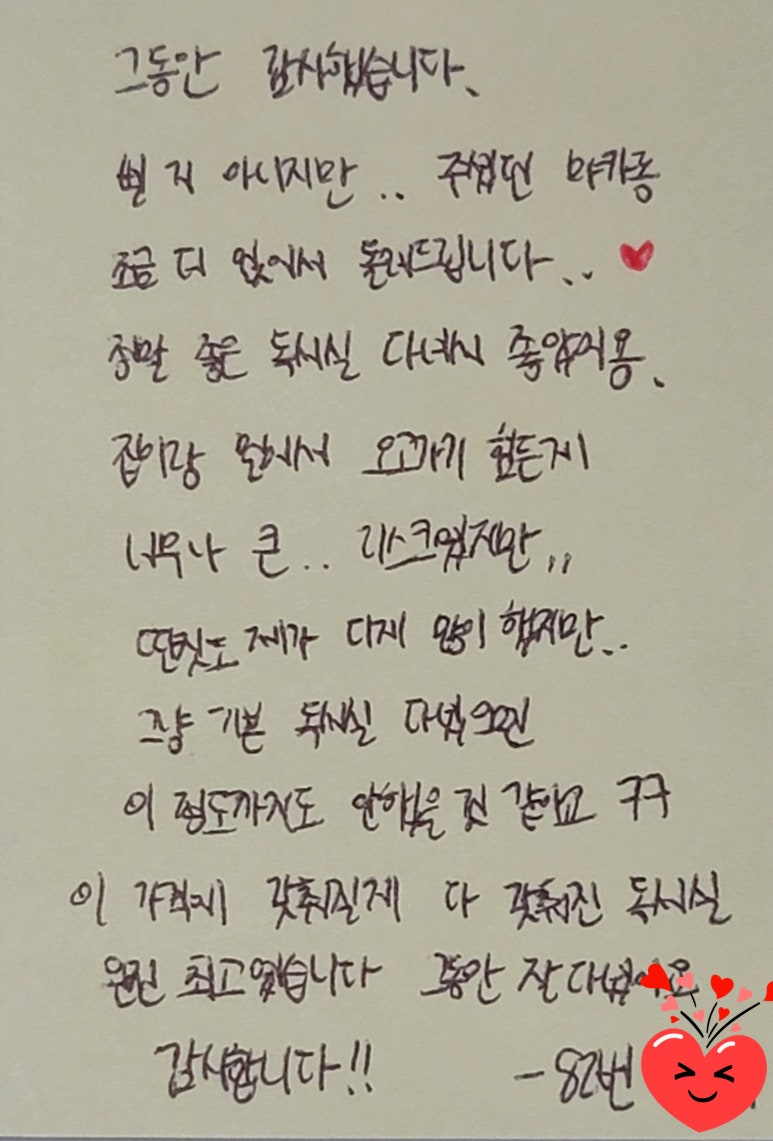 그동안 감사했습니다.
별 거 아니지만.. 주셨던 마카롱
조금 더 얹어서 돌려드립니다.. ♥
정말 좋은 독서실 다녀서 좋았어용.
집이랑 멀어서 오고가기 힘든게
너무나 큰.. 리스크였지만,,
딴짓도 제가 다제 많이 했지만..
그냥 기본 독서실 다녔으면
이 정도까지도 안했을 것 같아고 ㅋㅋ
이 가격에 갖춰질게 다 갖춰진 독서실
완전 최고였습니다 그동안 잘 다녔어요
감사합니다!! - 82번